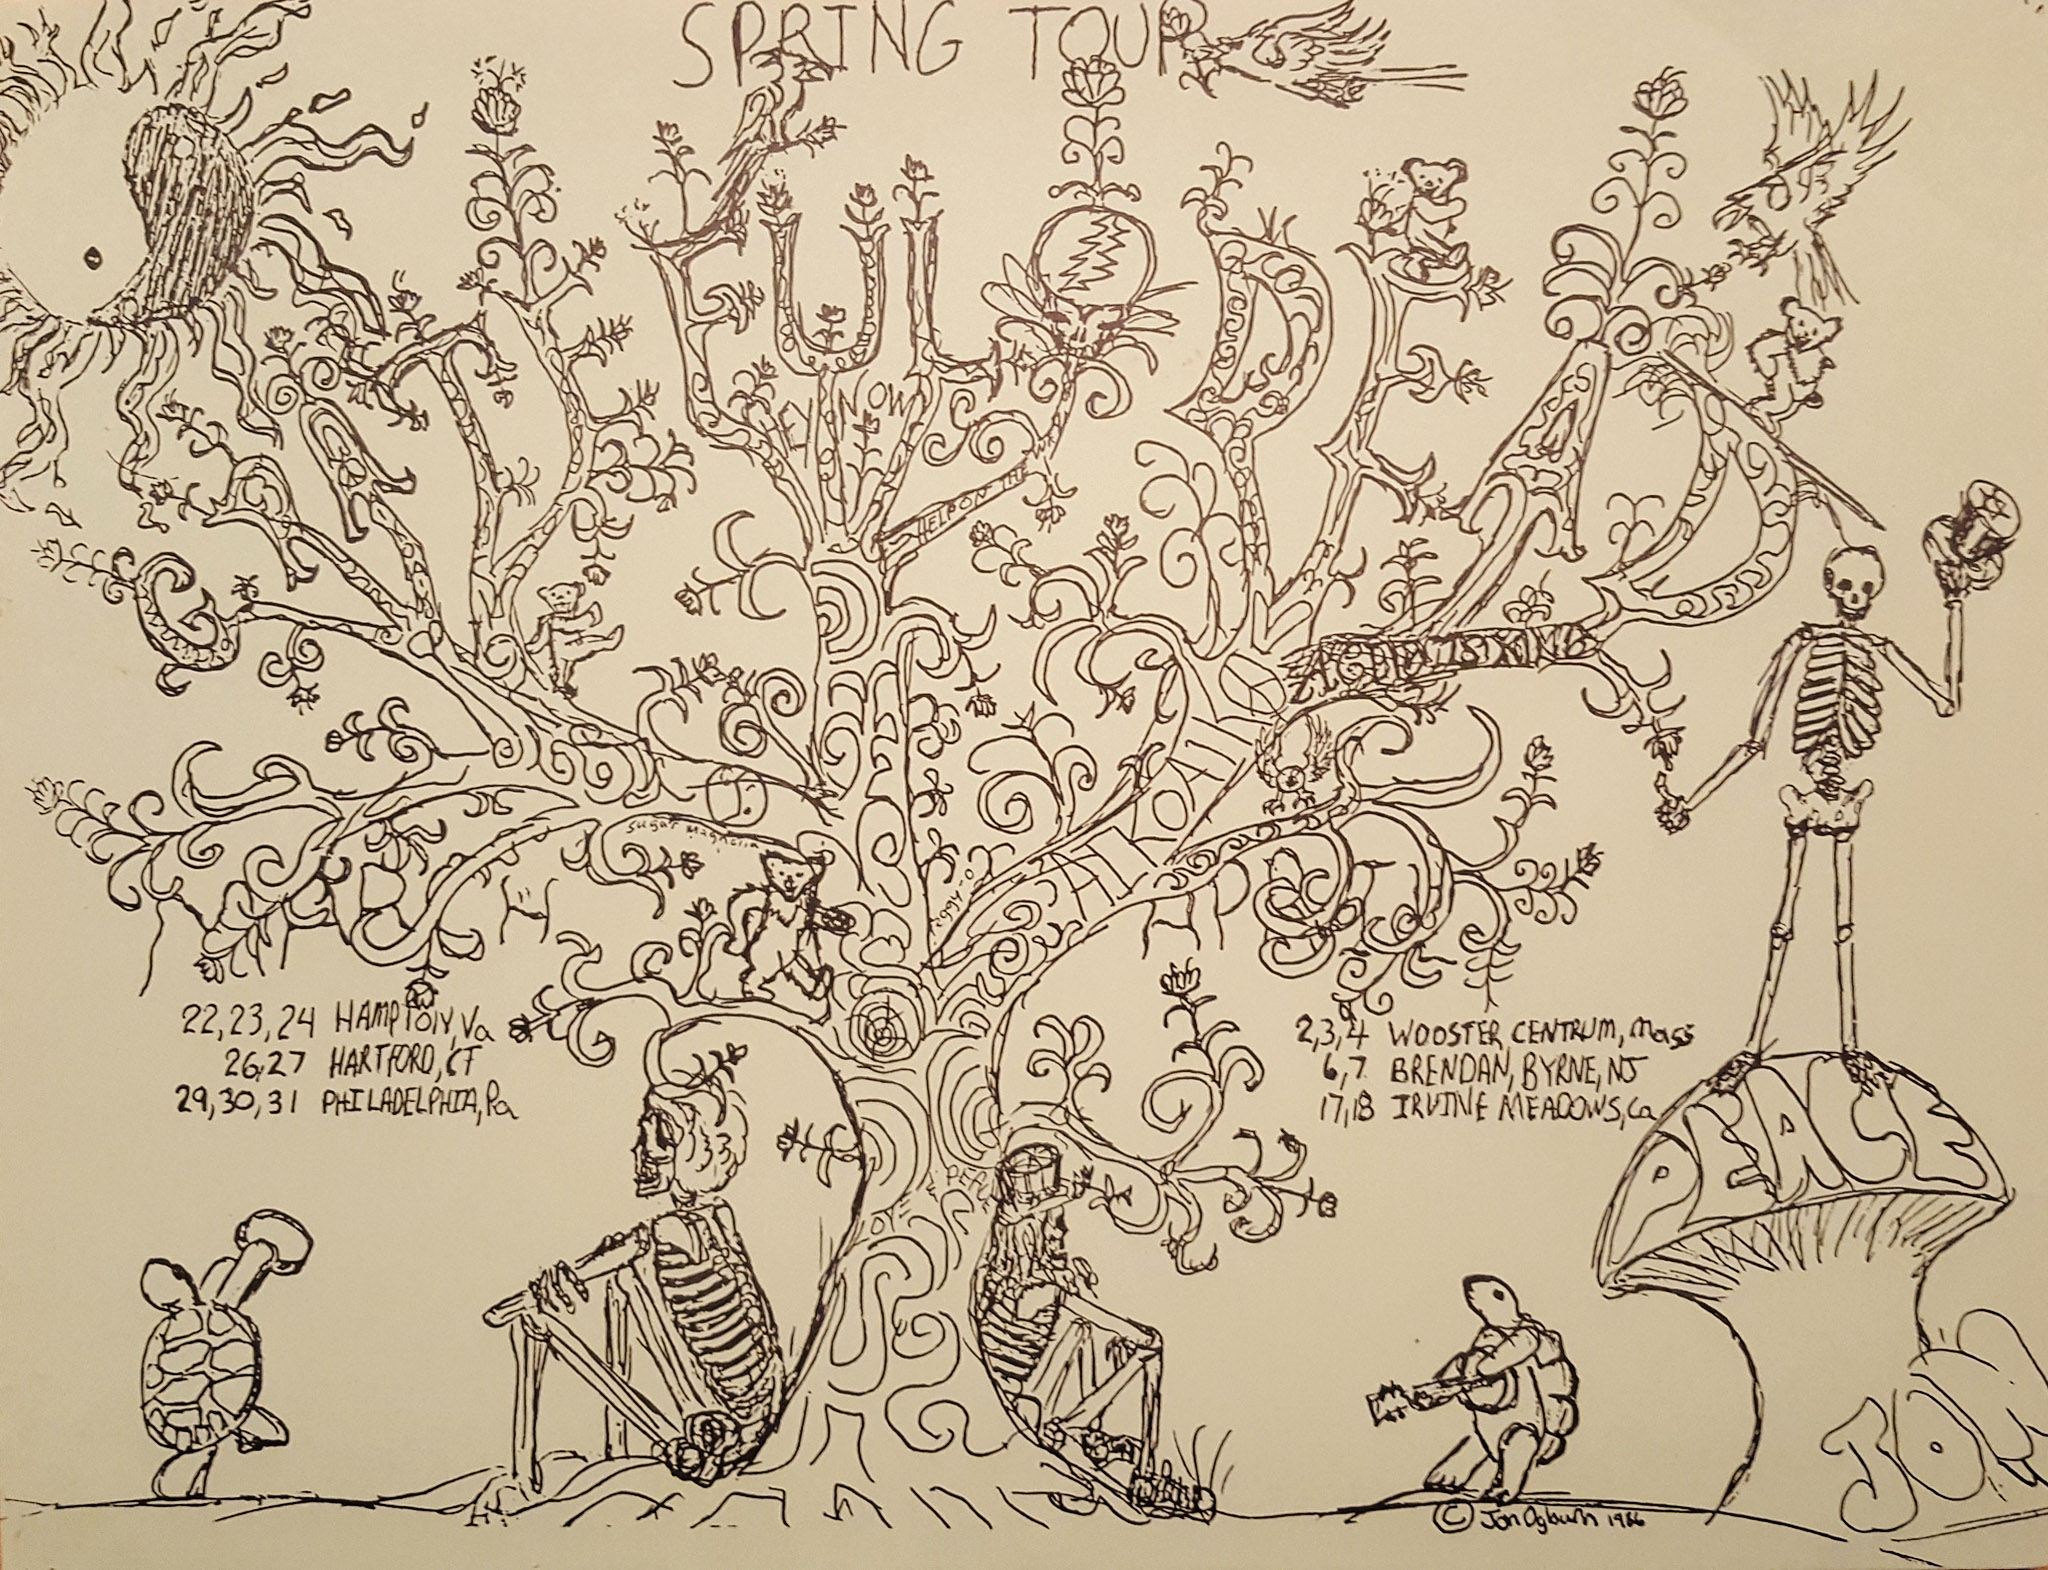 SPRING TOUR
GRATEFUL DEAD
HEY NOW
HELP ON THE WAY
SHAKEDOWN
AGENT IS KIND
SUGAR MAGNOLIA
22,23,24 HAMPTON, Va
26,27 HARTFORD, CT
29,30,31 PHILADELPHIA, Pa
2,3,4 WOOSTER CENTRUM, Mass
6,7 BRENDAN, BYRNE, NJ
17,18 IRVINE MEADOWS, Ca
PEACE
JON
© Jon Ogburn 1986